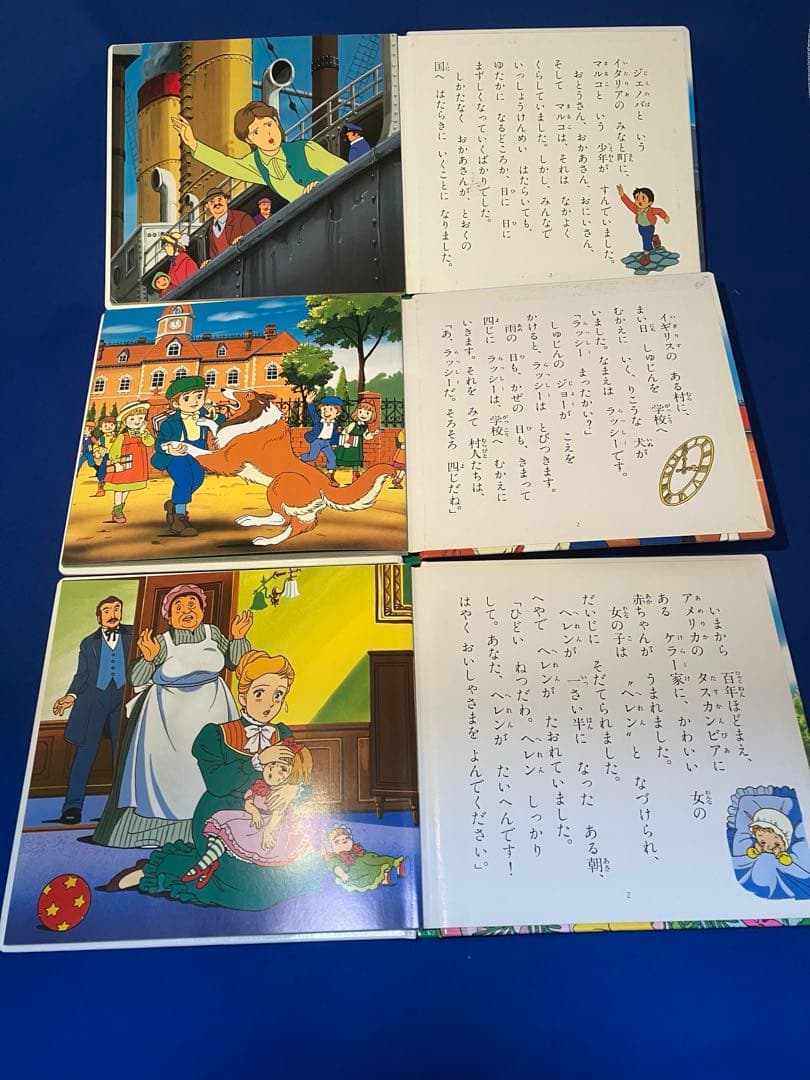 ジェノバと いう
イタリアの みなと町に、
マルコと いう 少年が すんでいました。
おとうさん、おかあさん、おにいさん、
そして マルコは、それは なかよく
くらしていました。しかし、みんなで
いっしょうけんめい はたらいても、
ゆたかに なるどころか、日に 日に
まずしくなっていくばかりでした。
しかたなく おかあさんが、とおくの
国へ はたらきに いくことに なりました。
2
イギリスの ある村に、
まい日 しゅじんを 学校へ
むかえに いく、りこうな 犬が
いました。なまえは ラッシーです。
「ラッシー まったかい？」
しゅじんの ジョーが こえを
かけると、ラッシーは とびつきます。
雨の 日も、かぜの 日も、きまって
四じに ラッシーは 学校へ むかえに
いきます。それを みて 村人たちは、
「あ、ラッシーだ。そろそろ 四じだね。」
2
いまから 百年ほどまえ、
アメリカの タスカンビアに
ある ケラー家に、かわいい 女の
赤ちゃんが うまれました。
女の子は "ヘレン" と なづけられ、
だいじに そだてられました。
ヘレンが 一さい半に なった ある朝、
へやで ヘレンが たおれていました。
「ひどい ねつだわ。ヘレン しっかり
して。あなた、ヘレンが たいへんです！
はやく おいしゃさまを よんでください」
2